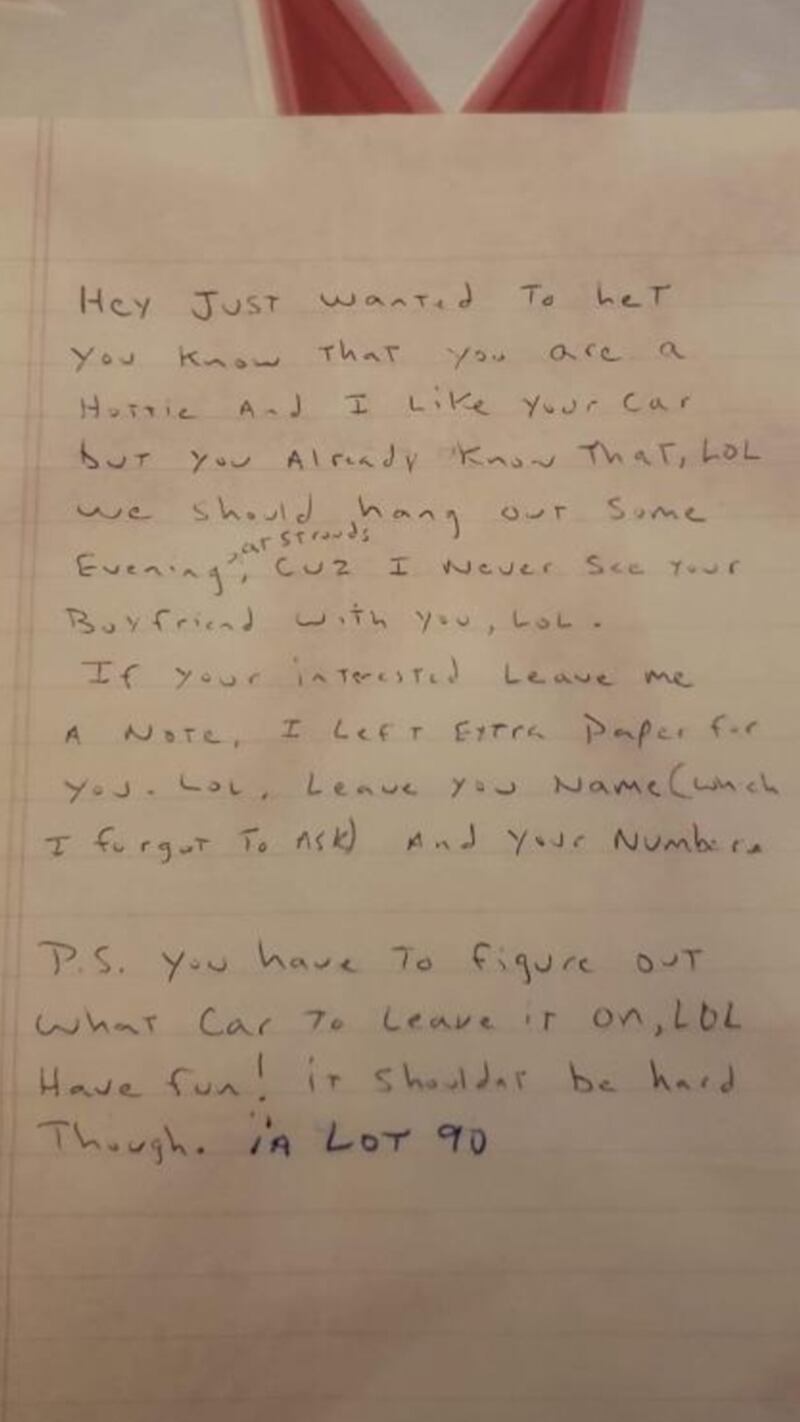 Hey Just wanted To Let
you know That you are a
Hottie And I Like your Car
but you Already know That, LOL
we should hang out Some
, at strouds
Evening, cuz I Never See your
Boyfriend with you, LOL.
If your interested Leave me
A Note, I Left Extra Paper for
you. LOL, Leave you Name (whch
I forgot To Ask) And your Number.

P.S. you have To figure out
what Car To Leave it on, LOL
Have fun! it shouldnt be hard
Though. in LOT 90